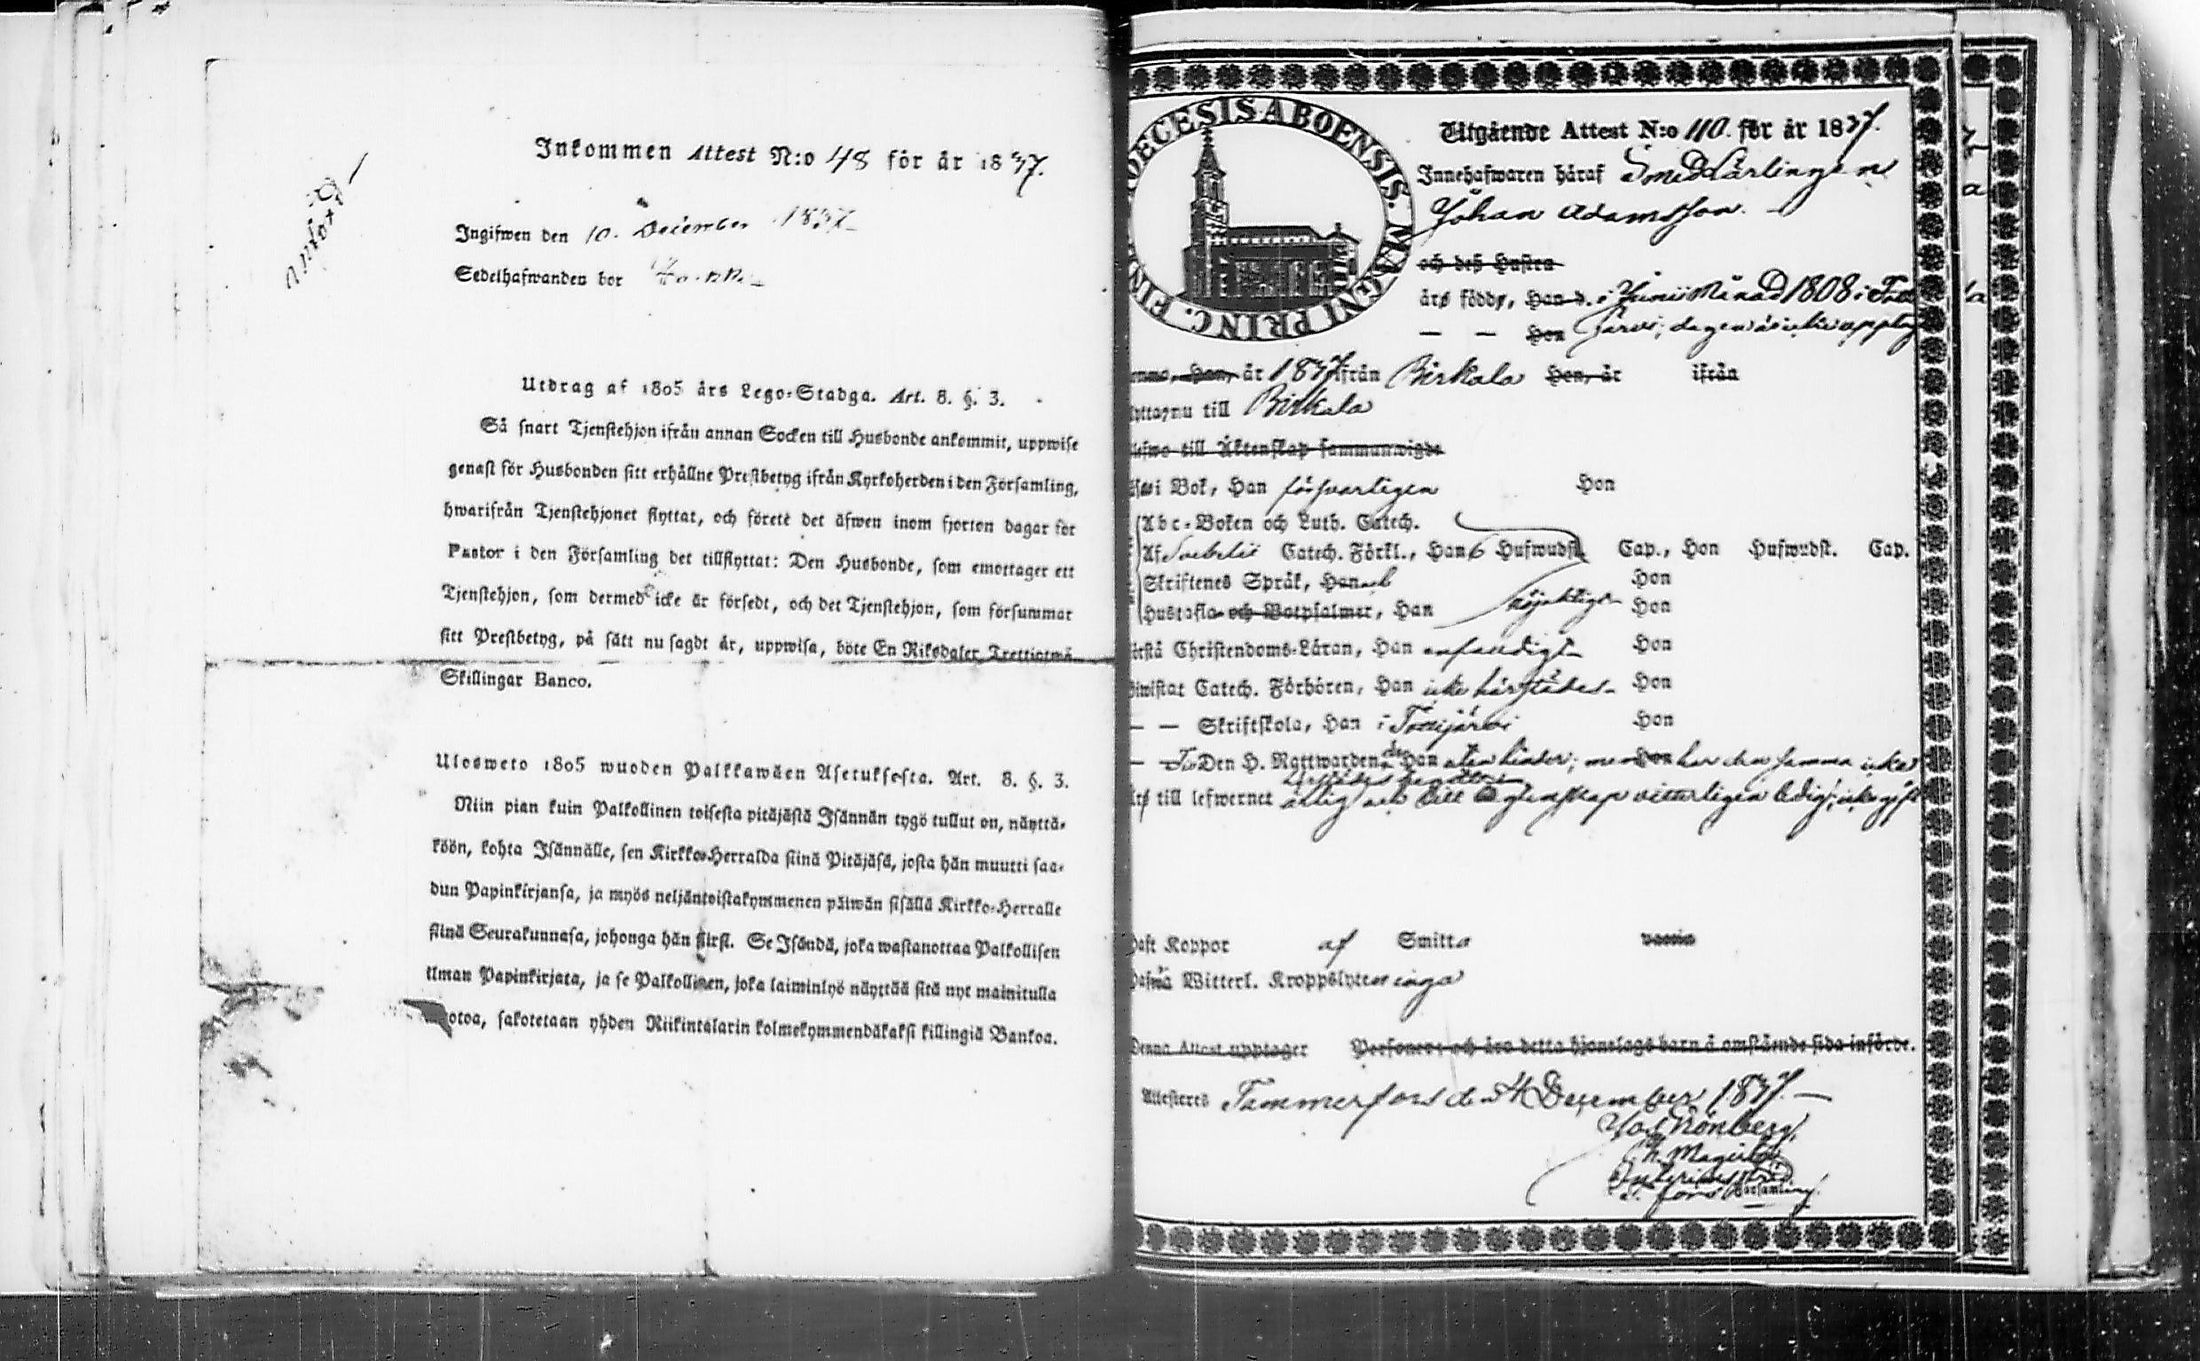 Inkommen Attest N:o 48 för år 1837.
Ingifwen den 10. December 1837
Sedelhafwanden bor
Utdrag af 1805 års Lego-Stadga. Art. 8. §. 3.
Så snart Tjenstehjon ifrån annan Socken till Husbonde ankommit, uppwise
genast för Husbonden sitt erhållne Prestbetyg ifrån Kyrkoherden i den Församling,
hwarifrån Tjenstehjonet flyttat, och förete det äfwen inom fjorton dagar för
Pastor i den Församling det tillflyttat: Den Husbonde, som emottager ett
Tjenstehjon, som dermed icke är försedt, och det Tjenstehjon, som försummar
sitt Prestbetyg, på sätt nu sagdt är, uppwisa, böte En Riksdaler Trettiotwå
Skillingar Banco.
Ulosweto 1805 wuoden Palkkawäen Asetuksesta. Art. 8. §. 3.
Niin pian kuin Palkollinen toisesta pitäjästä Isännän tygö tullut on, näyttä-
köön, kohta Isännälle, sen Kirkko-Herralda siinä Pitäjäsä, josta hän muutti saa-
dun Papinkirjansa, ja myös neljäntoistakymmenen päiwän sisällä Kirkko-Herralle
siinä Seurakunnasa, johonga hän siirst. Se Isändä, joka wastanottaa Palkollisen
ilman Papinkirjata, ja se Palkollinen, joka laiminlyö näyttää sitä nyt mainitulla
otoa, sakotetaan yhden Riikintalarin kolmekymmendäkaksi killingiä Bankoa.
DIOECESIS ABOENSIS. MAGNI PRINC. FIN
Utgående Attest N:o 110. för år 1837.
Innehafwaren häraf Smedslärlingen
Johan Adamsson.
och deß Hustru
äro födde, Han d. i Junii Månad 1808 i Totti
— — Hon järvi; dagen är icke upptag
Han, år 1837 ifrån Birkala Hon, år ifrån
nu till Birkala
till Äktenskap sammanwigde
i Bok, Han försvarligen Hon
Abc-Boken och Luth. Catech.
Af Svebelii Catech. Förkl., Han 6 Hufwudst. Cap., Hon Hufwudst. Cap.
Skriftenes Språk, Han Hon
Hustafla och Botpsalmer, Han nöjaktigt Hon
Christendoms-Läran, Han enfaldigt Hon
Catech. Förhören, Han icke härstädes Hon
— — Skriftskola, Han i Tottijärvi Hon
— Den H. Nattwarden, Han utan hinder; men Hon har den samma icke
härstädes
till lefwernet ärlig och till Egtenskap vitterligen ledig; icke gift
Haft Koppor af Smitta
Witterl. Kroppslyten inga
Denna Attest upptager Personer: och äro detta hjonelags barn å omstående sida införde.
Attesteras Tammerfors den 4 December 1837.
Grönberg,
T. fors Församling.